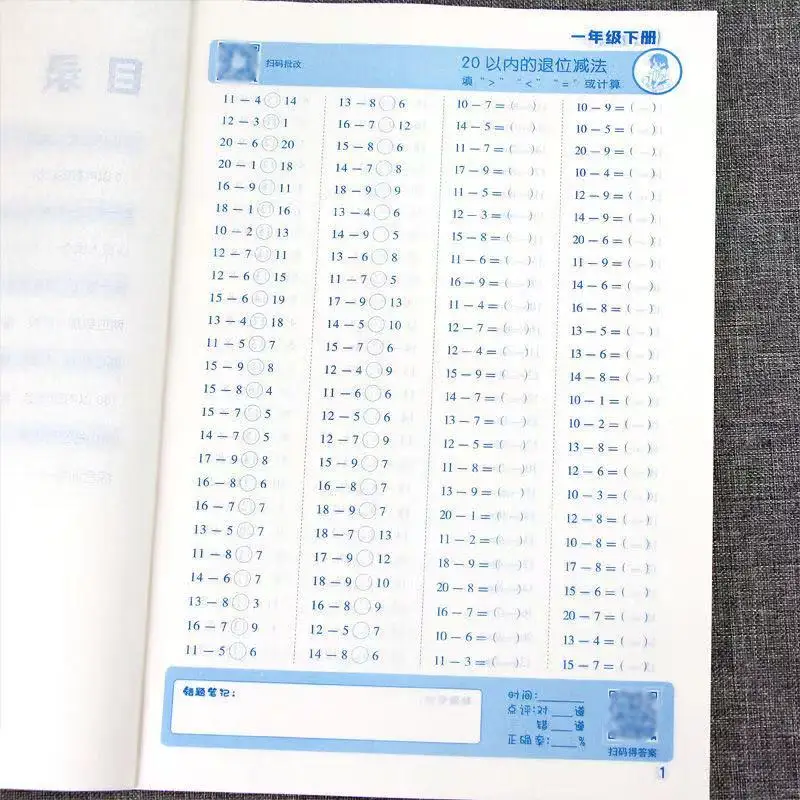 一年级下册
扫码批改
20 以内的退位减法
填 ">" "<" "=" 或计算
11 － 4 ○ 14
12 － 3 ○ 1
20 － 6 ○ 20
20 － 1 ○ 18
16 － 9 ○ 11
18 － 1 ○ 16
10 － 2 ○ 13
12 － 7 ○ 11
12 － 6 ○ 15
15 － 6 ○ 19
13 － 4 ○ 18
11 － 5 ○ 7
15 － 9 ○ 8
15 － 8 ○ 4
15 － 7 ○ 5
14 － 7 ○ 5
17 － 9 ○ 8
16 － 8 ○ 6
16 － 7 ○ 7
13 － 5 ○ 7
11 － 8 ○ 7
14 － 6 ○ 7
13 － 8 ○ 3
16 － 7 ○ 9
11 － 5 ○ 6
13 － 8 ○ 6
16 － 7 ○ 12
15 － 8 ○ 6
14 － 7 ○ 8
18 － 9 ○ 9
13 － 4 ○ 6
14 － 9 ○ 5
13 － 6 ○ 8
11 － 7 ○ 5
17 － 9 ○ 13
14 － 5 ○ 10
15 － 7 ○ 6
12 － 4 ○ 9
11 － 6 ○ 6
12 － 5 ○ 6
12 － 7 ○ 9
15 － 9 ○ 7
16 － 8 ○ 7
18 － 9 ○ 7
18 － 7 ○ 13
17 － 9 ○ 12
18 － 9 ○ 10
16 － 8 ○ 9
12 － 5 ○ 7
14 － 8 ○ 6
10 － 7 ＝ (　)
14 － 5 ＝ (　)
11 － 7 ＝ (　)
17 － 9 ＝ (　)
11 － 5 ＝ (　)
12 － 3 ＝ (　)
15 － 8 ＝ (　)
11 － 6 ＝ (　)
16 － 9 ＝ (　)
11 － 4 ＝ (　)
12 － 7 ＝ (　)
12 － 4 ＝ (　)
15 － 9 ＝ (　)
14 － 7 ＝ (　)
13 － 7 ＝ (　)
12 － 5 ＝ (　)
11 － 8 ＝ (　)
13 － 9 ＝ (　)
20 － 1 ＝ (　)
11 － 2 ＝ (　)
18 － 9 ＝ (　)
20 － 8 ＝ (　)
16 － 7 ＝ (　)
10 － 6 ＝ (　)
11 － 3 ＝ (　)
10 － 9 ＝ (　)
10 － 5 ＝ (　)
20 － 9 ＝ (　)
10 － 4 ＝ (　)
12 － 9 ＝ (　)
14 － 9 ＝ (　)
20 － 6 ＝ (　)
11 － 9 ＝ (　)
14 － 6 ＝ (　)
16 － 8 ＝ (　)
13 － 5 ＝ (　)
13 － 6 ＝ (　)
14 － 8 ＝ (　)
10 － 1 ＝ (　)
10 － 2 ＝ (　)
13 － 8 ＝ (　)
12 － 6 ＝ (　)
10 － 3 ＝ (　)
12 － 8 ＝ (　)
10 － 8 ＝ (　)
17 － 8 ＝ (　)
15 － 6 ＝ (　)
20 － 7 ＝ (　)
13 － 4 ＝ (　)
15 － 7 ＝ (　)
错题笔记：
时间：____
点评：对 __ 道
错 __ 道
正确率：__ %
扫码得答案
1